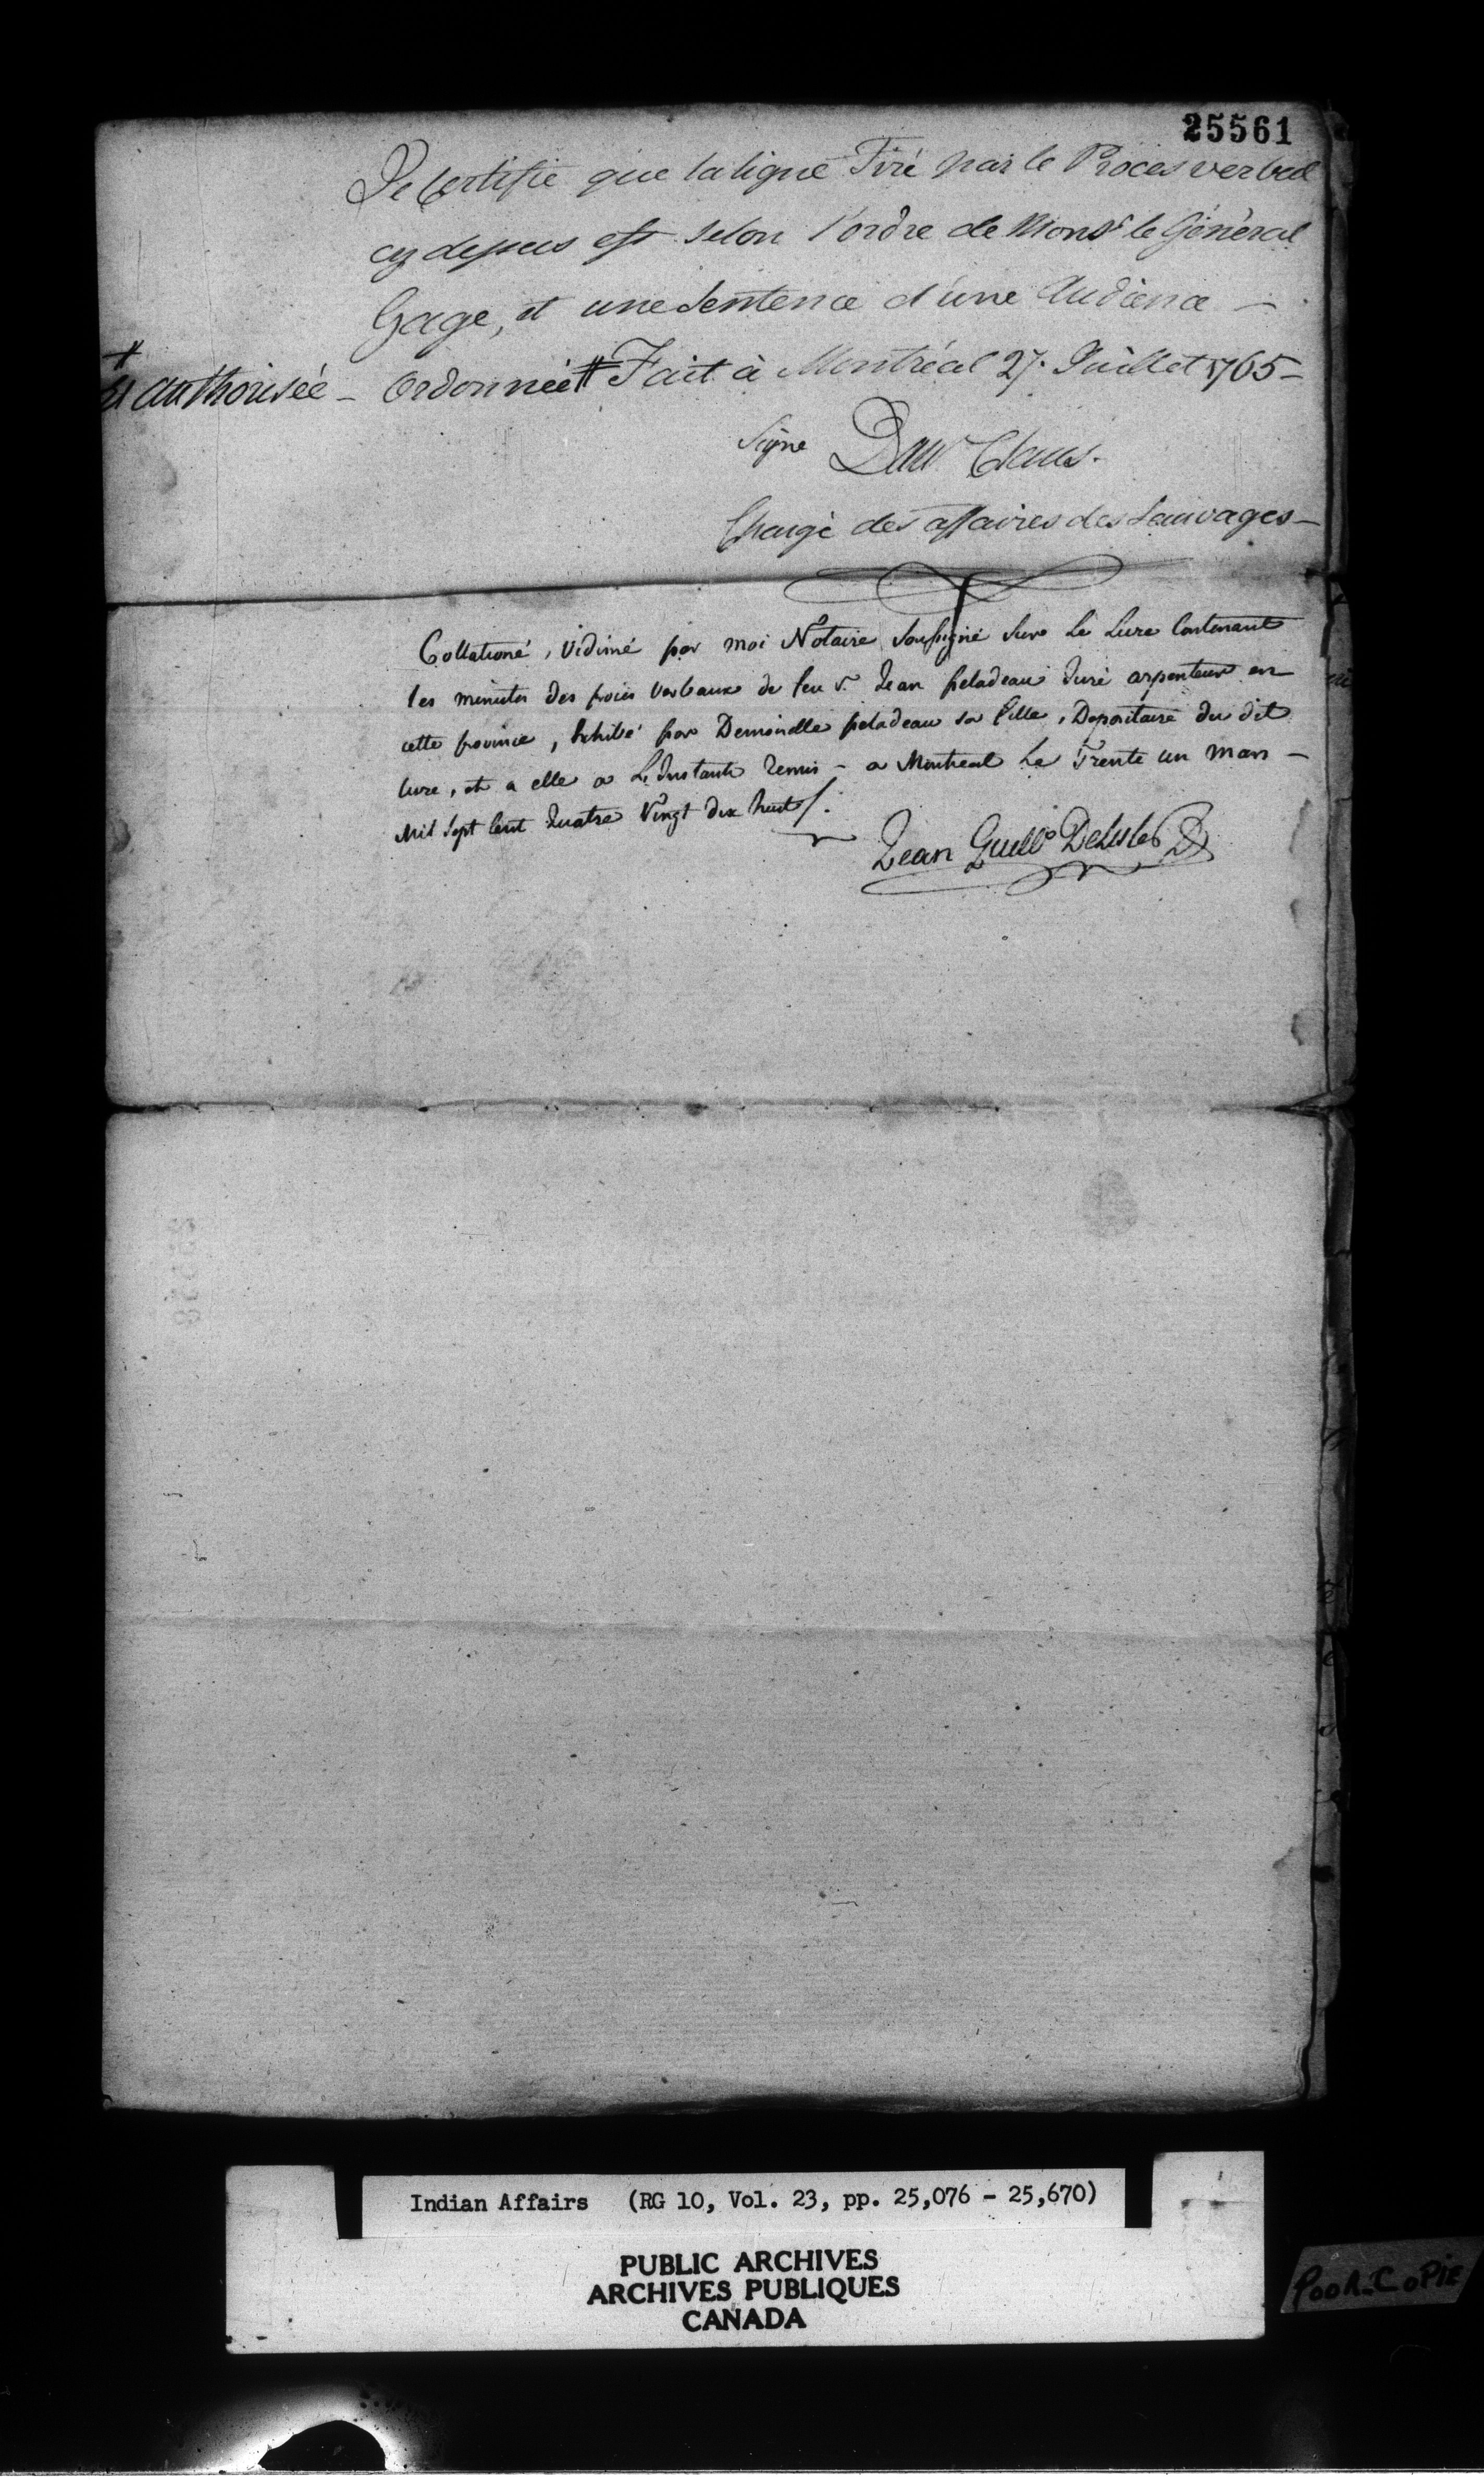 25561
Je Certifie que la ligne Tiré par le Procés verbal
cy dessus est selon l'ordre de Monsr. le Général
Gage, et une Sentence d'une Audience —
# et authorisée — Ordonneé # Fait à Montréal 27. Juillet 1765 —
Signe Danl Claus.
Chargé des affaires des Sauvages —
Collationé, Vidimé par moi Notaire Soussigné Sur Le Livre Contenant
les minutes des procès Verbaux de feu Sr. Jean peladeau Juré arpenteur en
cette province, Exhibé par Demoiselle peladeau sa fille, Depositaire du dit
Livre, et a elle a L'Instant Remis — a Montreal Le Trente un Mars —
Mil Sept Cent Quatre Vingt dix huit /.
Jean Guille Delisle
Indian Affairs (RG 10, Vol. 23, pp. 25,076 - 25,670)
PUBLIC ARCHIVES
ARCHIVES PUBLIQUES
CANADA
POOR COPIE